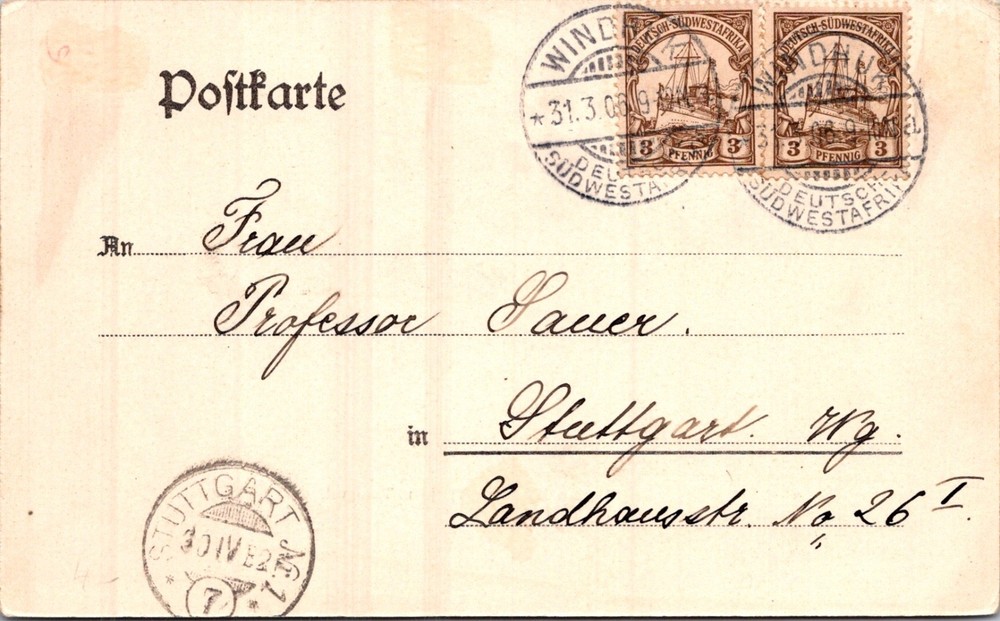 Postkarte
WINDHUK
*31.3.06.9
DEUTSCH-
SÜDWESTAFRIKA
DEUTSCH-SÜDWESTAFRIKA
3 PFENNIG 3
DEUTSCH-SÜDWESTAFRIKA
3 PFENNIG 3
WINDHUK
DEUTSCH-
SÜDWESTAFRIKA
An Frau
Professor Sauer.
in Stuttgart. Wg.
Landhausstr. No 26 I.
STUTTGART Nr. 1
30 IV
7
4-